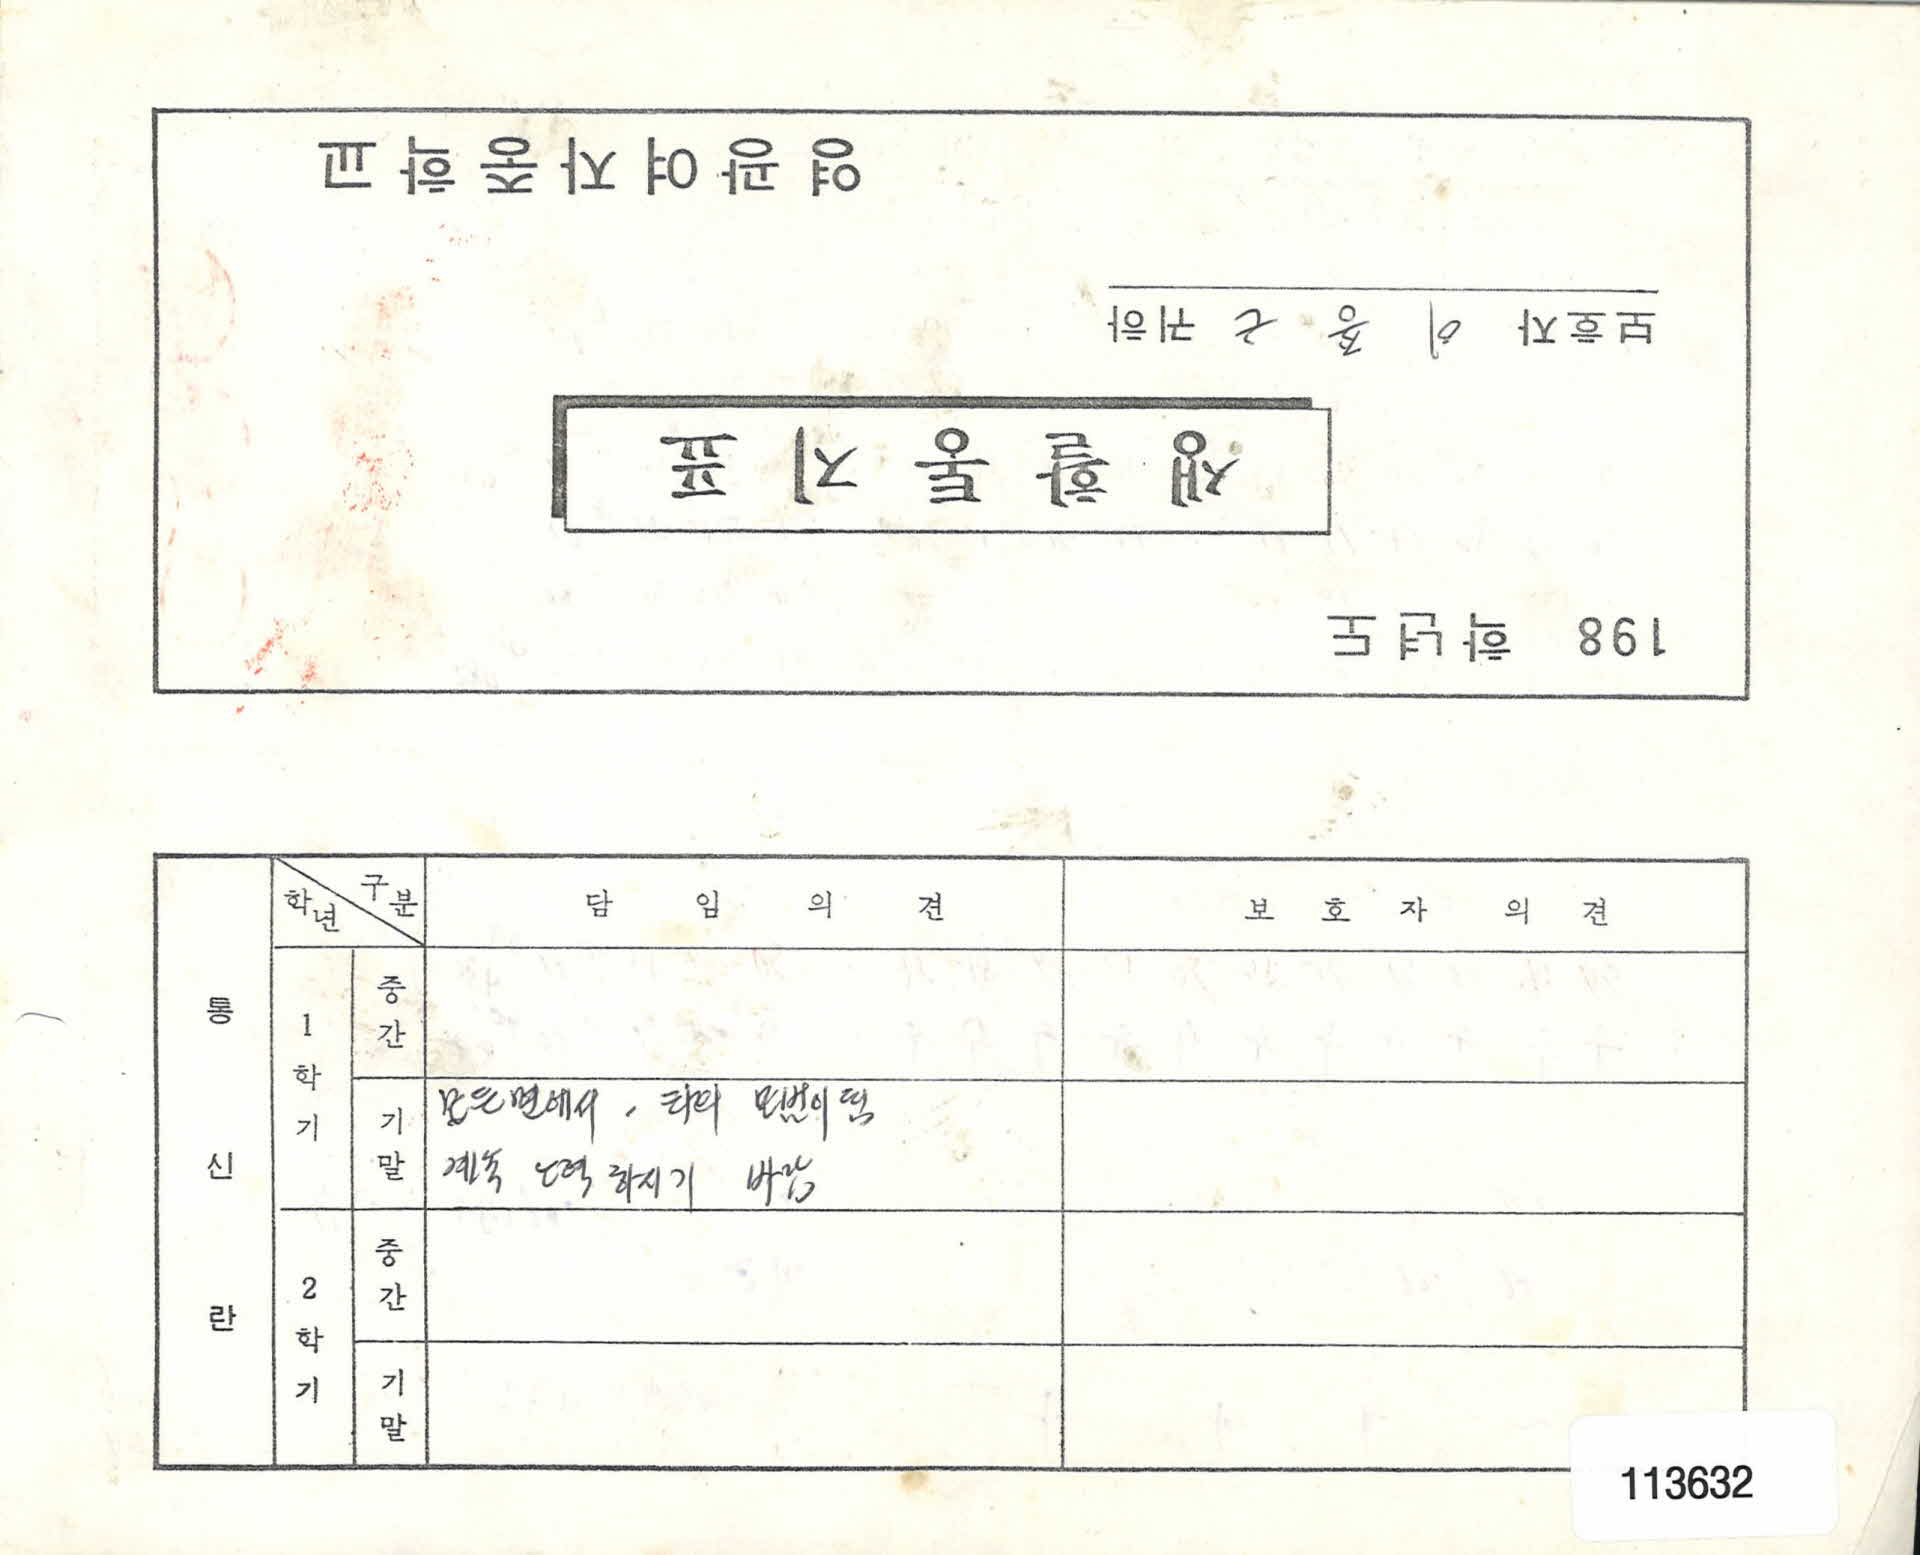 198 학년도
생활통지표
보호자 이종근 귀하
영광여자중학교
통신란
학년 구분 담임의견 보호자 의견
1학기
중간
기말
모든면에서, 타의 모범이 됨
계속 노력하시기 바람
2학기
중간
기말
113632